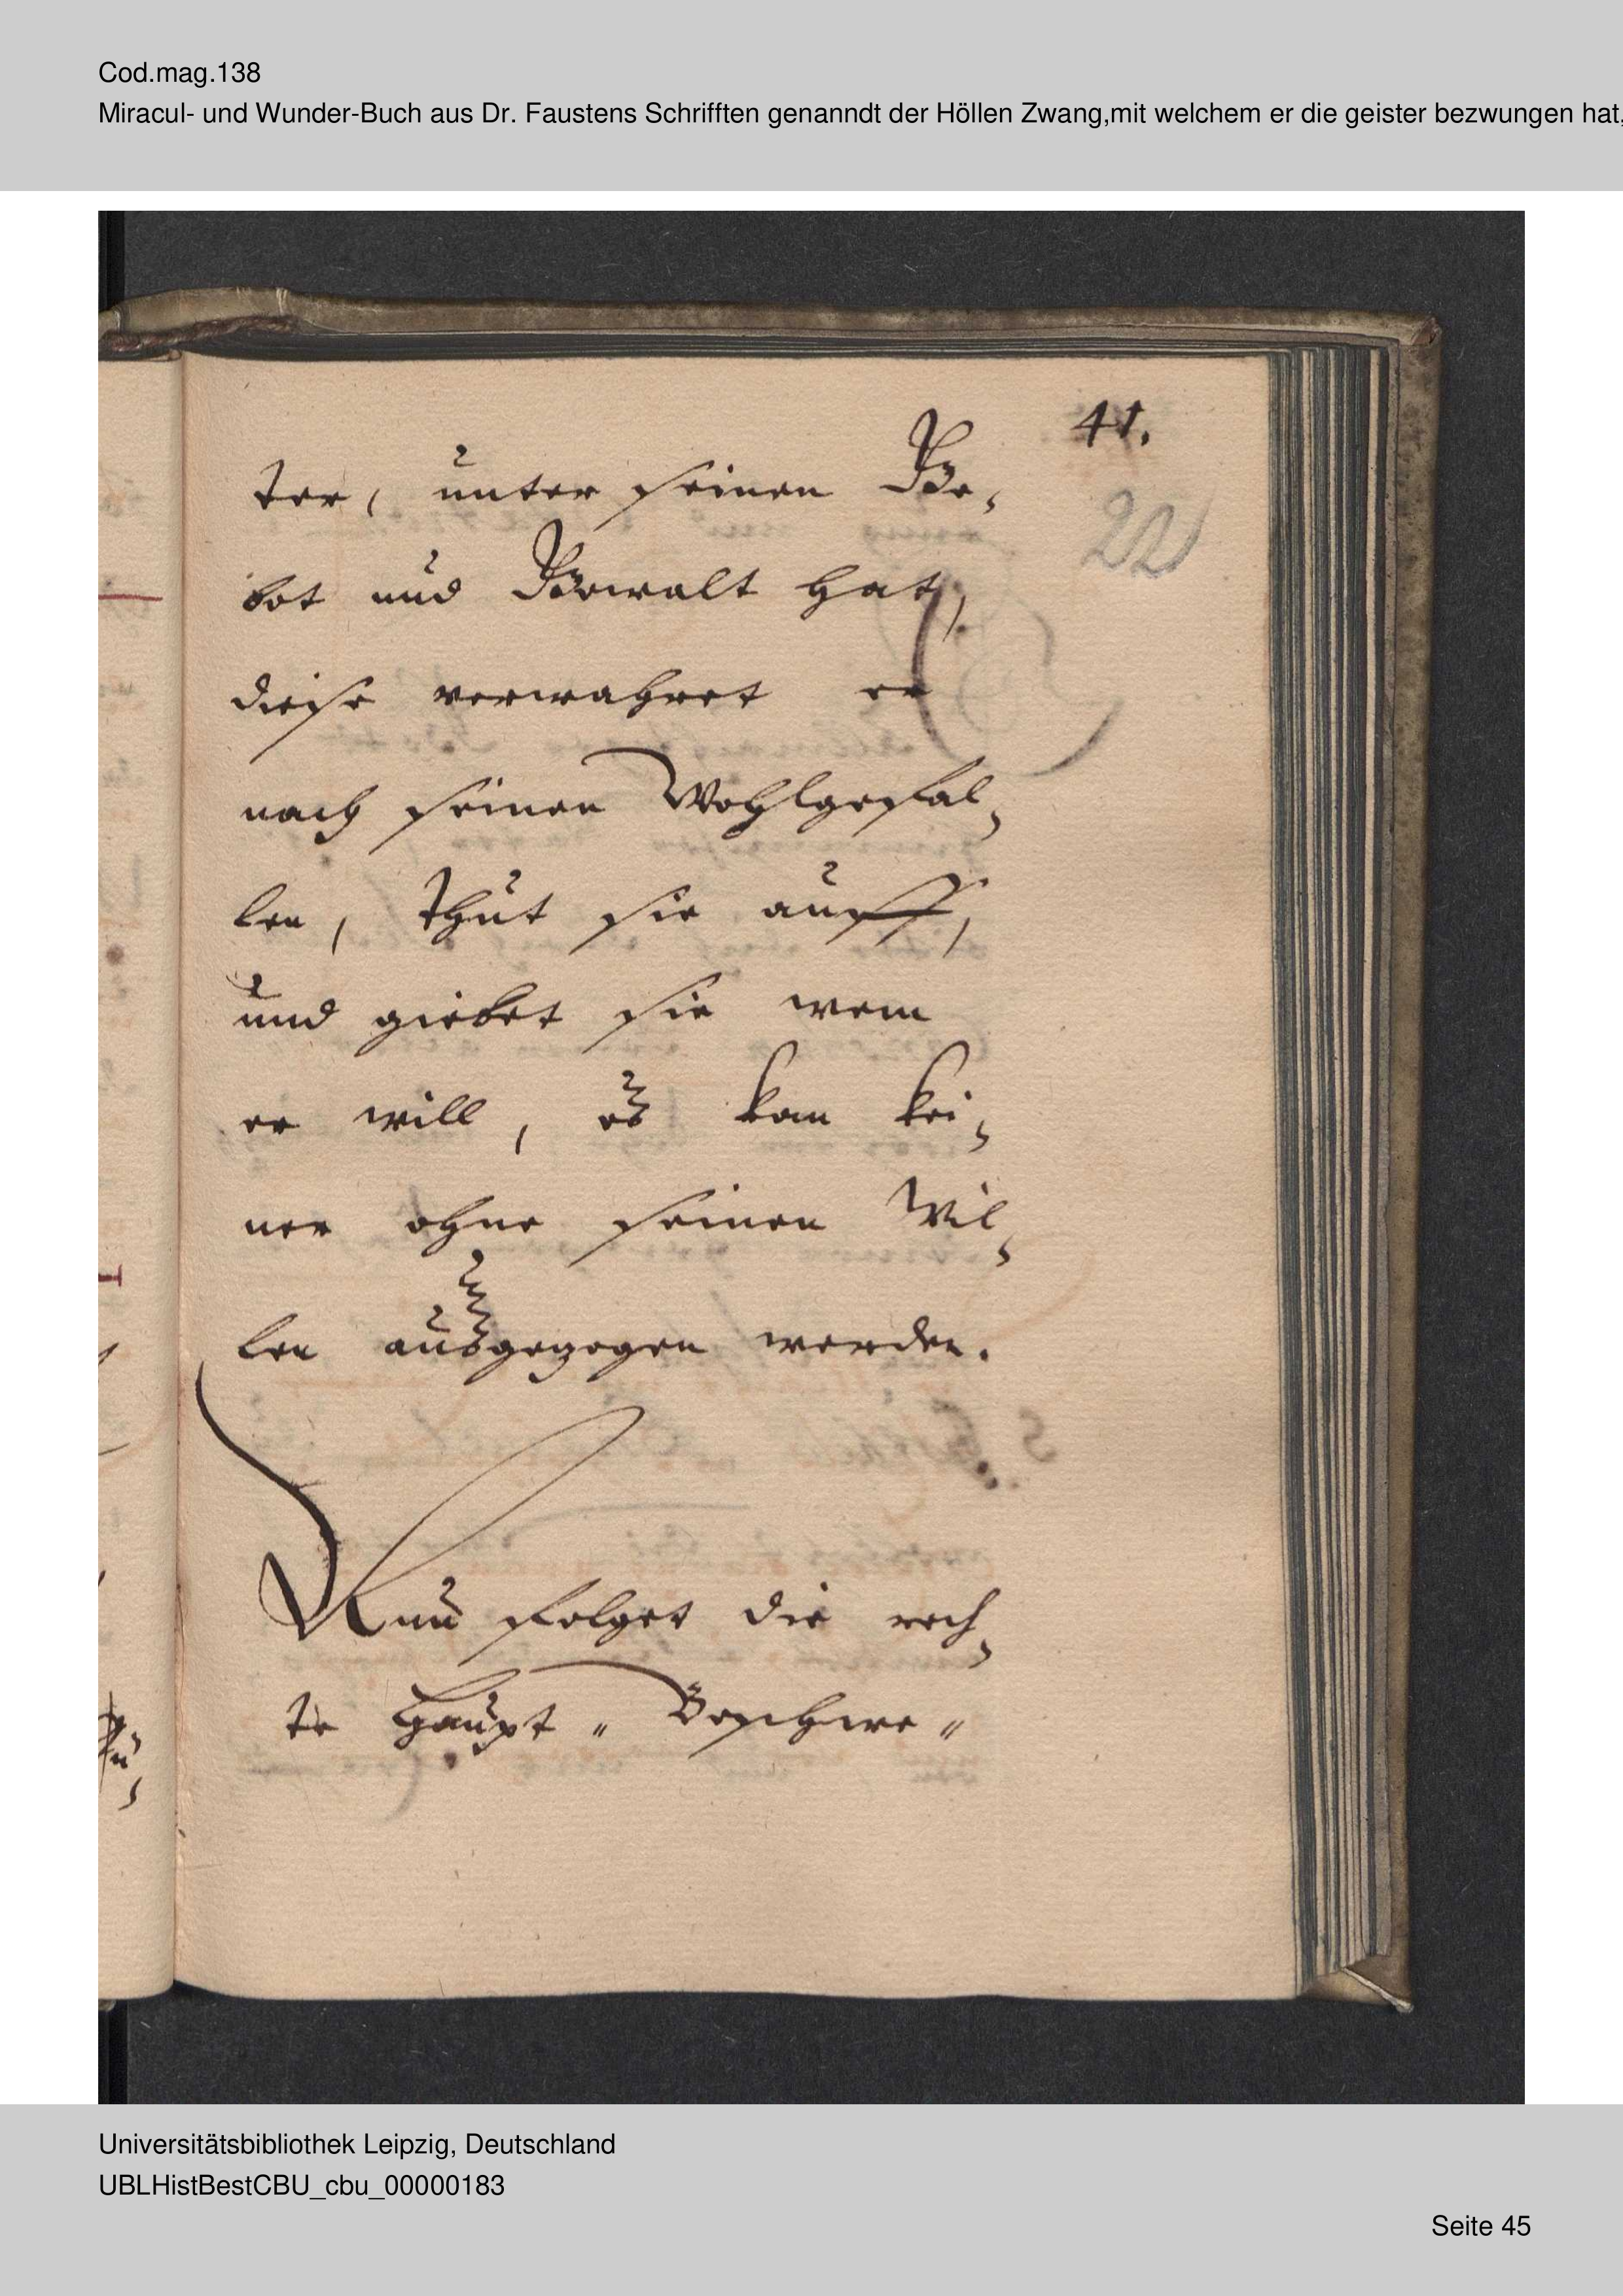 Cod.mag.138
Miracul- und Wunder-Buch aus Dr. Faustens Schrifften genanndt der Höllen Zwang,mit welchem er die geister bezwungen hat,
41.
22
ter, unter seinen Ge,
bot und Gewalt hat,
diese verwahret er
nach seinen Wohlgefal,
len, thut sie auff,
und giebet sie wem
er will, es kan kei,
ner ohne seinen Wil,
len ausgezogen werden.
Nun folget die rech,
te Haupt „ Beschwe „
Universitätsbibliothek Leipzig, Deutschland
UBLHistBestCBU_cbu_00000183
Seite 45